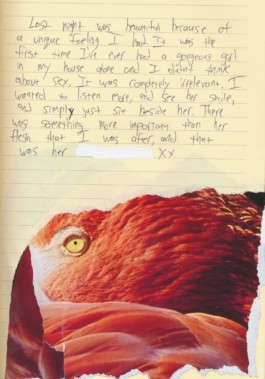 Last night was beautiful because of
a unique feeling I had. It was the
first time I've ever had a gorgeous girl
in my house alone and I didn't think
about sex. It was completely irrelevant. I
wanted to listen more, and see her smile,
and simply just sit beside her. There
was something more important than her
flesh that I was after, and that
was her
xx